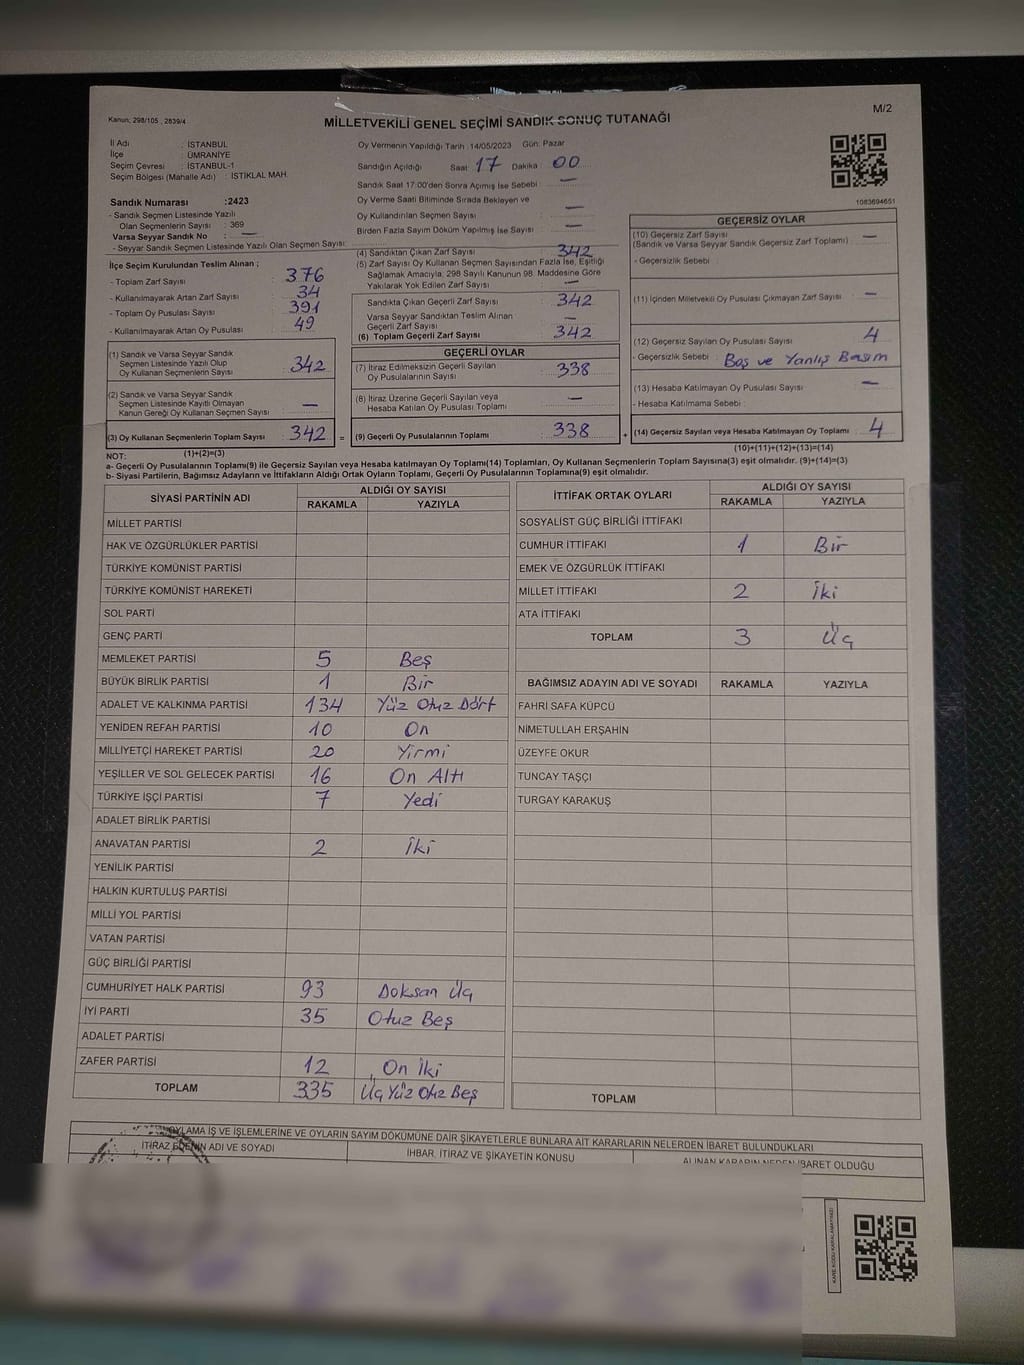 Kanun; 298/105 , 2839/4
M/2
MİLLETVEKİLİ GENEL SEÇİMİ SANDIK SONUÇ TUTANAĞI
İl Adı : İSTANBUL
İlçe : ÜMRANİYE
Seçim Çevresi : İSTANBUL-1
Seçim Bölgesi (Mahalle Adı) : İSTİKLAL MAH.
Sandık Numarası :2423
- Sandık Seçmen Listesinde Yazılı
Olan Seçmenlerin Sayısı : 369
Varsa Seyyar Sandık No : —
- Seyyar Sandık Seçmen Listesinde Yazılı Olan Seçmen Sayısı:
Oy Vermenin Yapıldığı Tarih :14/05/2023 Gün: Pazar
Sandığın Açıldığı Saat 17 Dakika : 00
Sandık Saat 17:00'den Sonra Açımış İse Sebebi : —
Oy Verme Saati Bitiminde Sırada Bekleyen ve
Oy Kullandırılan Seçmen Sayısı : —
Birden Fazla Sayım Döküm Yapılmış İse Sayısı : —
1083694651
İlçe Seçim Kurulundan Teslim Alınan ;
- Toplam Zarf Sayısı : 376
- Kullanılmayarak Artan Zarf Sayısı : 34
- Toplam Oy Pusulası Sayısı : 391
- Kullanılmayarak Artan Oy Pusulası : 49
(1) Sandık ve Varsa Seyyar Sandık
Seçmen Listesinde Yazılı Olup
Oy Kullanan Seçmenlerin Sayısı : 342
(2) Sandık ve Varsa Seyyar Sandık
Seçmen Listesinde Kayıtlı Olmayan
Kanun Gereği Oy Kullanan Seçmen Sayısı : —
(3) Oy Kullanan Seçmenlerin Toplam Sayısı : 342 =
(4) Sandıktan Çıkan Zarf Sayısı : 342
(5) Zarf Sayısı Oy Kullanan Seçmen Sayısından Fazla İse, Eşitliği
Sağlamak Amacıyla; 298 Sayılı Kanunun 98. Maddesine Göre
Yakılarak Yok Edilen Zarf Sayısı : —
Sandıkta Çıkan Geçerli Zarf Sayısı : 342
Varsa Seyyar Sandıktan Teslim Alınan
Geçerli Zarf Sayısı : —
(6) Toplam Geçerli Zarf Sayısı : 342
GEÇERLİ OYLAR
(7) İtiraz Edilmeksizin Geçerli Sayılan
Oy Pusulalarının Sayısı : 338
(8) İtiraz Üzerine Geçerli Sayılan veya
Hesaba Katılan Oy Pusulası Toplamı : —
(9) Geçerli Oy Pusulalarının Toplamı : 338 +
GEÇERSİZ OYLAR
(10) Geçersiz Zarf Sayısı
(Sandık ve Varsa Seyyar Sandık Geçersiz Zarf Toplamı) : —
- Geçersizlik Sebebi :
(11) İçinden Milletvekili Oy Pusulası Çıkmayan Zarf Sayısı : —
(12) Geçersiz Sayılan Oy Pusulası Sayısı : 4
- Geçersizlik Sebebi : Boş ve Yanlış Basım
(13) Hesaba Katılmayan Oy Pusulası Sayısı : —
- Hesaba Katılmama Sebebi :
(14) Geçersiz Sayılan veya Hesaba Katılmayan Oy Toplamı : 4
NOT: (1)+(2)=(3) (10)+(11)+(12)+(13)=(14)
a- Geçerli Oy Pusulalarının Toplamı(9) ile Geçersiz Sayılan veya Hesaba katılmayan Oy Toplamı(14) Toplamları, Oy Kullanan Seçmenlerin Toplam Sayısına(3) eşit olmalıdır. (9)+(14)=(3)
b- Siyasi Partilerin, Bağımsız Adayların ve İttifakların Aldığı Ortak Oyların Toplamı, Geçerli Oy Pusulalarının Toplamına(9) eşit olmalıdır.
SİYASİ PARTİNİN ADI ALDIĞI OY SAYISI
RAKAMLA YAZIYLA
MİLLET PARTİSİ
HAK VE ÖZGÜRLÜKLER PARTİSİ
TÜRKİYE KOMÜNİST PARTİSİ
TÜRKİYE KOMÜNİST HAREKETİ
SOL PARTİ
GENÇ PARTİ
MEMLEKET PARTİSİ 5 Beş
BÜYÜK BİRLİK PARTİSİ 1 Bir
ADALET VE KALKINMA PARTİSİ 134 Yüz Otuz Dört
YENİDEN REFAH PARTİSİ 10 On
MİLLİYETÇİ HAREKET PARTİSİ 20 Yirmi
YEŞİLLER VE SOL GELECEK PARTİSİ 16 On Altı
TÜRKİYE İŞÇİ PARTİSİ 7 Yedi
ADALET BİRLİK PARTİSİ
ANAVATAN PARTİSİ 2 İki
YENİLİK PARTİSİ
HALKIN KURTULUŞ PARTİSİ
MİLLİ YOL PARTİSİ
VATAN PARTİSİ
GÜÇ BİRLİĞİ PARTİSİ
CUMHURİYET HALK PARTİSİ 93 Doksan Üç
İYİ PARTİ 35 Otuz Beş
ADALET PARTİSİ
ZAFER PARTİSİ 12 On İki
TOPLAM 335 Üç Yüz Otuz Beş
İTTİFAK ORTAK OYLARI ALDIĞI OY SAYISI
RAKAMLA YAZIYLA
SOSYALİST GÜÇ BİRLİĞİ İTTİFAKI
CUMHUR İTTİFAKI 1 Bir
EMEK VE ÖZGÜRLÜK İTTİFAKI
MİLLET İTTİFAKI 2 İki
ATA İTTİFAKI
TOPLAM 3 Üç
BAĞIMSIZ ADAYIN ADI VE SOYADI RAKAMLA YAZIYLA
FAHRİ SAFA KÜPCÜ
NİMETULLAH ERŞAHİN
ÜZEYFE OKUR
TUNCAY TAŞÇI
TURGAY KARAKUŞ
TOPLAM
OYLAMA İŞ VE İŞLEMLERİNE VE OYLARIN SAYIM DÖKÜMÜNE DAİR ŞİKAYETLERLE BUNLARA AİT KARARLARIN NELERDEN İBARET BULUNDUKLARI
İTİRAZ EDENİN ADI VE SOYADI İHBAR, İTİRAZ VE ŞİKAYETİN KONUSU ALINAN KARARIN NEDEN İBARET OLDUĞU
KARE KODU KARALAMAYINIZ!